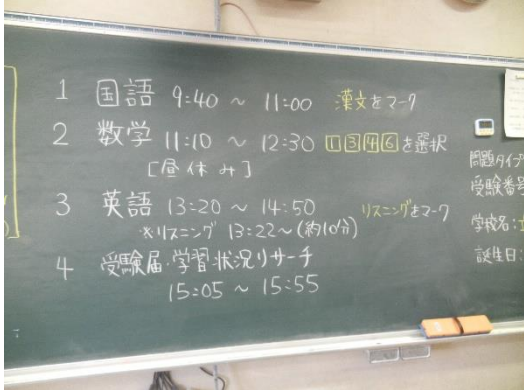 1 国語 9:40 ~ 11:00 漢文をマーク
2 数学 11:10 ~ 12:30 1 3 4 6 を選択
[昼休み]
3 英語 13:20 ~ 14:50 リスニングをマーク
※リスニング 13:22~(約10分)
4 受験届・学習状況リサーチ
15:05 ~ 15:55
問題タイプ
受験番号
学校名:
誕生日: